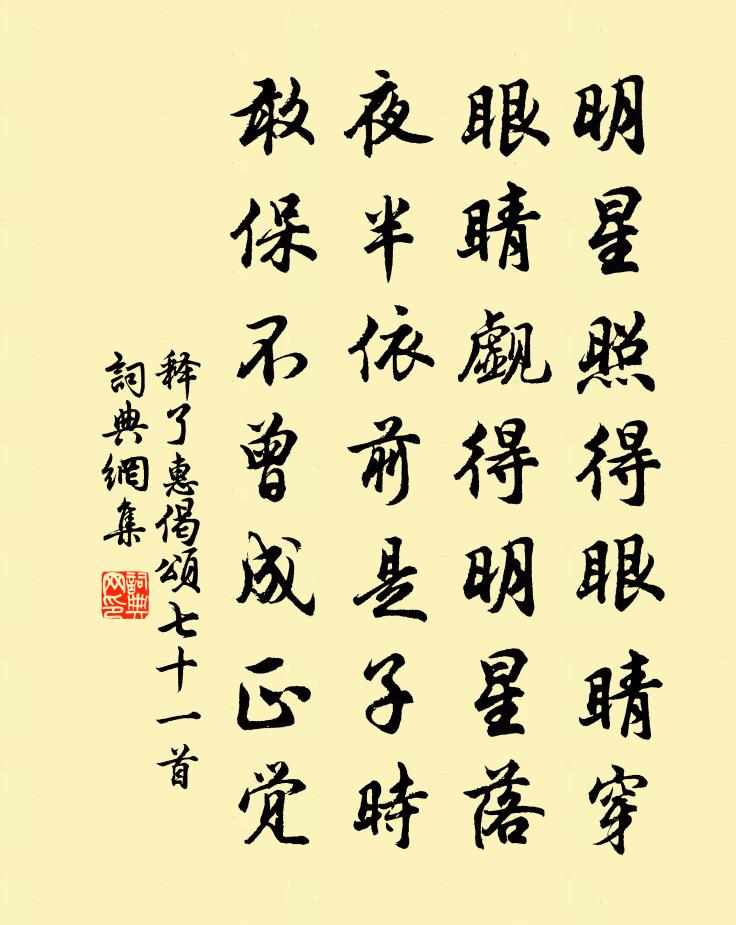 明星照得眼睛穿
眼睛觑得明星落
夜半依前是子時
敢保不曾成正觉
释了惠偈頌七十一首
詞典網集
詞典网印